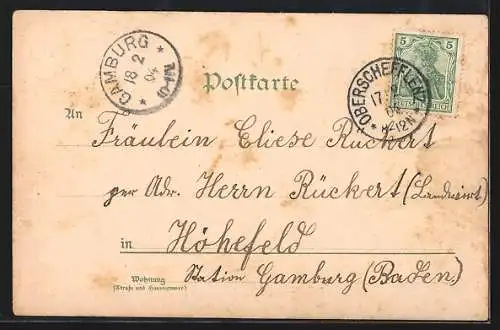 GAMBURG
18 2
04
Postkarte
5 5
OBERSCHEFFLENZ
17
An
Fräulein Eliese Rückert
per Adr. Herrn Rückert (Landwirt)
in Höhefeld
Station Gamburg (Baden.)
Wohnung
(Straße und Hausnummer)